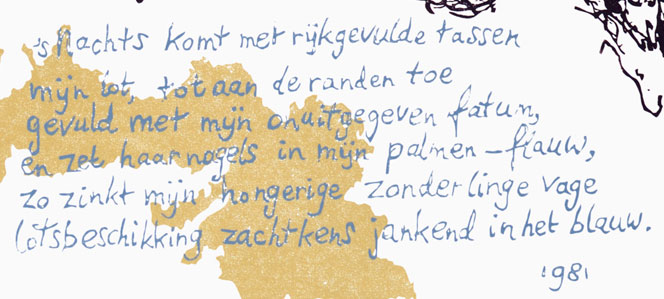 's Nachts komt met rijkgevulde tassen
mijn lot, tot aan de randen toe
gevuld met mijn onuitgegeven fatum,
en zet haar nagels in mijn palmen – flauw,
zo zinkt mijn hongerige zonderlinge vage
lotsbeschikking zachtkens jankend in het blauw.
'981